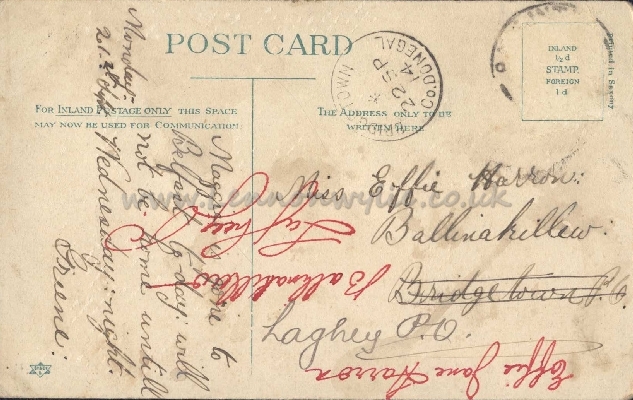 POST CARD
FOR INLAND POSTAGE ONLY THIS SPACE
MAY NOW BE USED FOR COMMUNICATION.
THE ADDRESS ONLY TO BE
WRITTEN HERE
INLAND
½d
STAMP
FOREIGN
1d
Printed in Saxony
CO. DONEGAL
22 SP
14
Monday
21st
Maggie is gone to
Belfast to day will
not be home untill
Wednesday night.
Greene:
Miss Effie Harron:
Ballinakillew:
Bridgetown P.O.
Laghey P.O.
Laghey
Ballinakillew
Effie Jane Harron